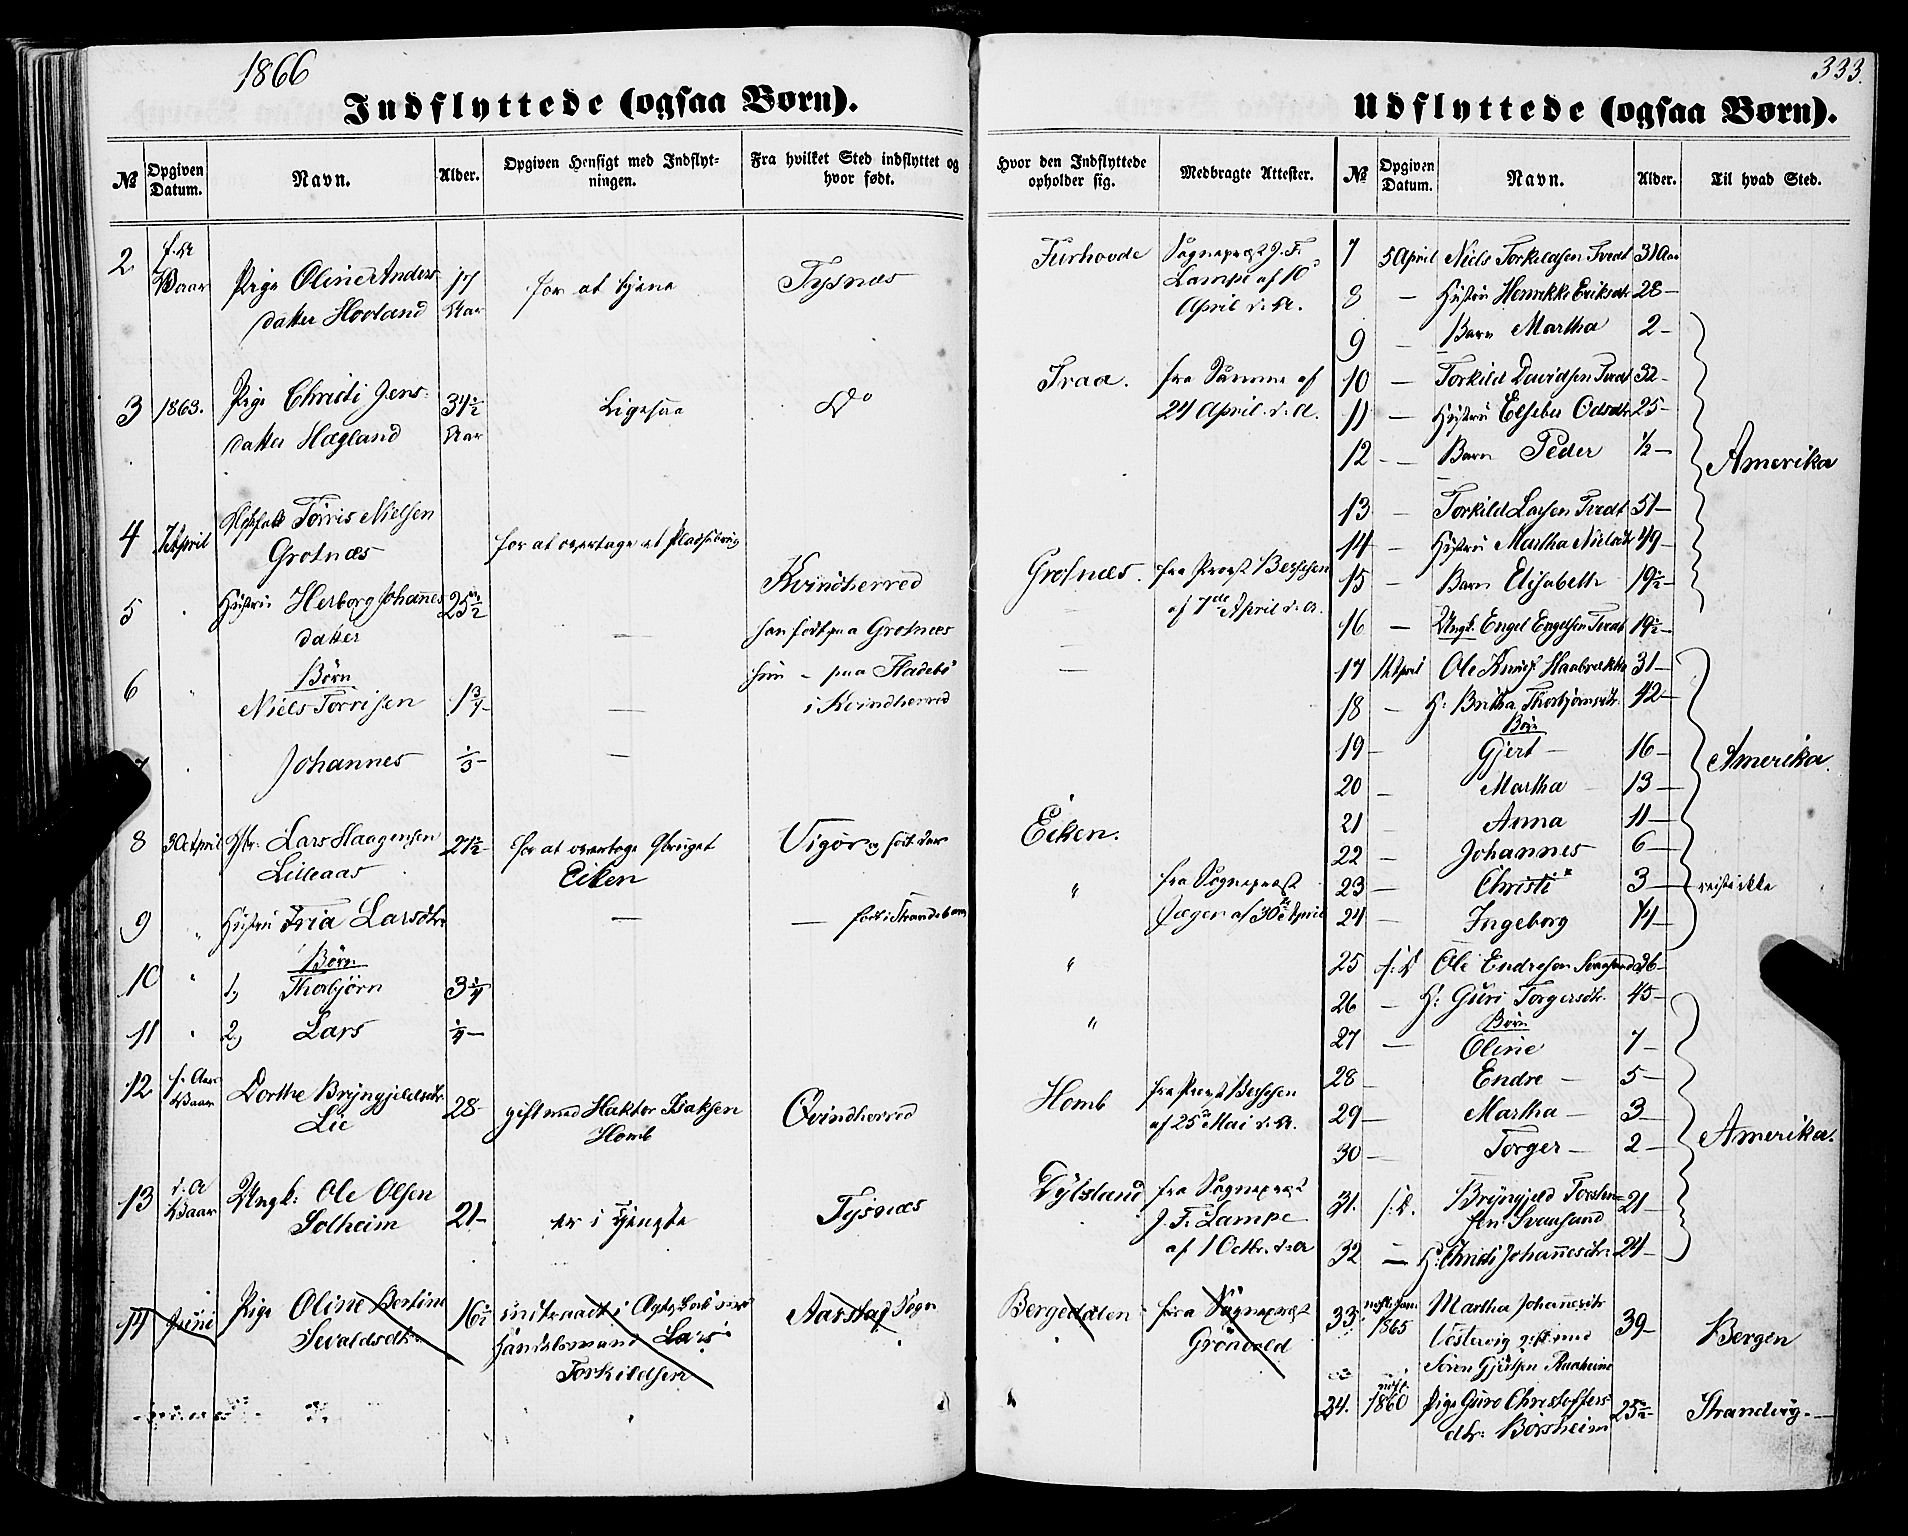 1866
333.
Indflyttede (ogsaa Børn).
Udflyttede (ogsaa Børn).
№
Opgiven Datum.
Navn.
Alder.
Opgiven Hensigt med Indflyt-
ningen.
Fra hvilket Sted indflyttet og
hvor født.
Hvor den Indflyttede
opholder sig.
Medbragte Attester.
№
Opgiven Datum.
Navn.
Alder.
Til hvad Sted.
2 Vaar Pige Oline Anders-
datter Hovland 17 Aar for at tjene Tysnæs
Furhovde Sognepræst J. F.
Lampe af 10
April d. A.
3 1863. Pige Christi Jens-
datter Hægland 34½ Aar Ligesaa Do
Traa. fra Samme af
24 April d. A.
4 April Tørris Nielsen
Grotnæs for at overtage et Pladsebrug
Kvindherred
5 Hustru Herborg Johannes
datter 25½ — han født paa Grotnæs
Grotnæs. fra Provst
af 7de April d. A.
6 Børn
Niels Torrisen 1¾ — hun – paa Fladebø
i Kvindherred
Johannes ⅓ —
8 30 April Lars Haagensen
Lilleaas 21½ for at overtage Bruget
Eiken Vigør og født der
Eiken. fra Sognepræst
af 30 April
9 Hustru Larsdtr — — født i Strandebarm
10 Børn
1, Thorbjørn 3¼
11 2, Lars ¼ —
12 Vaar Dorthe Bryngjeldsdtr
Lie 28 gift med Isaksen
Homb Qvindherred
Homb fra Provst
af 25 Mai d. A.
13 d. A Vaar Ungk: Ole Olsen
Solheim 21 – er i Tjeneste Tysnæs
fra Sognepræst
J. F. Lampe
af 1 Octbr. d. A
14 Juni Pige Oline Bertine
Sevaldsdtr 16½ indtraadt i
Handelsmand Lars
Torkildsen Aarstad Sogn
Bergedalen fra Sognepræst
Grönvold
7 5 April Niels Torkildsen Tvedt 31 Aar
8 — Hustru Henrikke Eriksdtr 28 –
9 — Barn Martha 2 –
10 — Torkild Davidsen Tvedt 32 –
11 — Hustru Elseber Odsdtr 25 –
12 — Barn Peder ½ –
Amerika
13 – Torkild Larsen Tvedt 51 –
14 – Hustru Martha Nielsdtr 49 –
15 – Barn Elisabeth 19½ –
16 — Ungk. Engel Engelsen Tvedt 19½ –
17 April Ole 31 –
18 – H: Brithe Thorbjørnsdtr. 42 –
Børn
19 – Gjert – 16 –
20 – Martha 13 –
Amerika.
21 – Anna 11 –
22 – Johannes 6 –
23 – Christi 3 — reiste ikke
24 – Ingeborg ¼ –
25 Ole Endresen 36 –
26 – H: Guri Torgersdtr. 45 –
Børn
27 — Oline 7 –
28 – Endre – 5 –
29 – Martha – 3 –
30 — Torger – 2 –
Amerika.
31. Bryngjeld Torsten-
sen Svansund 21 –
32 — H: Christi Johannesdtr: 24 –
33. 1865 Martha Johannesdtr
Vestervig gift med
Søren 39 – Bergen
34. 1860 Pige Guro Christoffers-
dtr: Børsheim 25½ Strandvig. —